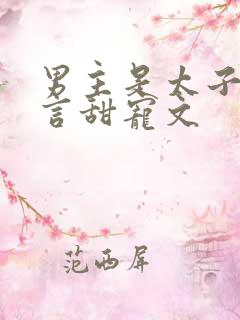 男主是太子
言甜宠文
范西屏